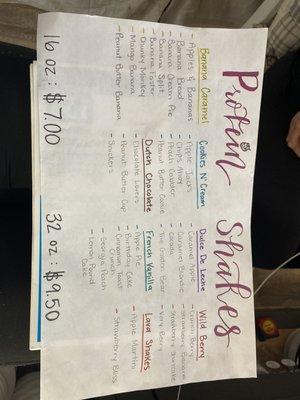 Protein Shakes
Banana Caramel
- Apples & Bananas
- Banana Bread
- Banana Cream Pie
- Banana Split
- Banana Foster
- Chunky Monkey
- Mango Banana
- Peanut Butter Banana
Cookies N' Cream
- Apple Jacks
- Chips Ahoy
- Peach Cobbler
- Peanut Butter Cookie
Dutch Chocolate
- Chocolate Lovers
- Peanut Butter Cup
- Snickers
Dulce De Leche
- Caramel Apple
- Caramel Blondie
- Cicada
- The Golden Bear
French Vanilla
- Apple Pie
- Birthday Cake
- Cinnamon Toast
Crunch
- Georgia Peach
- Lemon Pound
Cake
Wild Berry
Berry
- Strawberry Banana
- Strawberry Shortcake
- Very Berry
Lava Shakes
- Apple Martini
- Strawberry Bliss
16 oz : $7.00
32 oz : $9.50